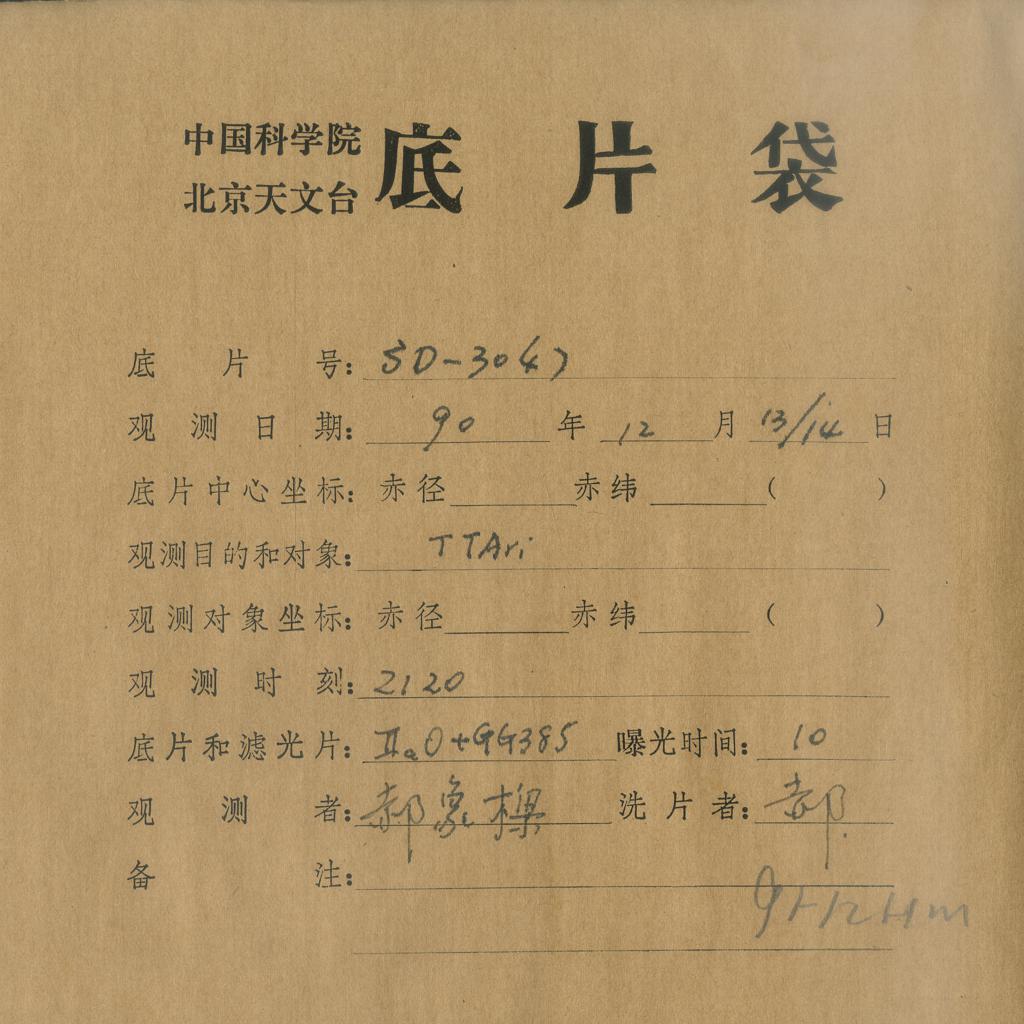 中国科学院
北京天文台 底片袋
底片号: SD-3047
观测日期: 90 年 12 月 13/14 日
底片中心坐标: 赤径 赤纬 ( )
观测目的和对象: TTAri
观测对象坐标: 赤径 赤纬 ( )
观测时刻: 2120
底片和滤光片: IIaO+GG385 曝光时间: 10
观测者: 郝象樑 洗片者: 郝
备注: